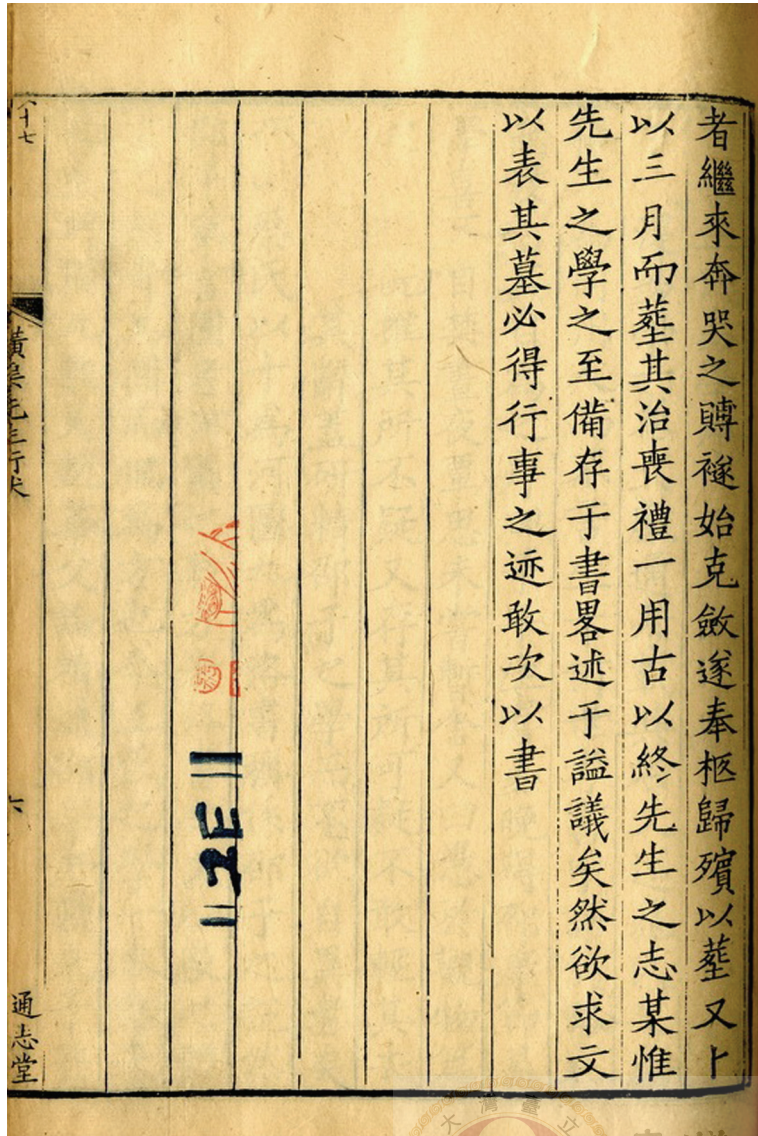 者繼來奔哭之賻襚始克斂遂奉柩歸殯以塟又卜
以三月而塟其治喪禮一用古以終先生之志某惟
先生之學之至備存于書畧述于謚議矣然欲求文
以表其墓必得行事之迹敢次以書
十七
橫渠先生行狀
六
通志堂